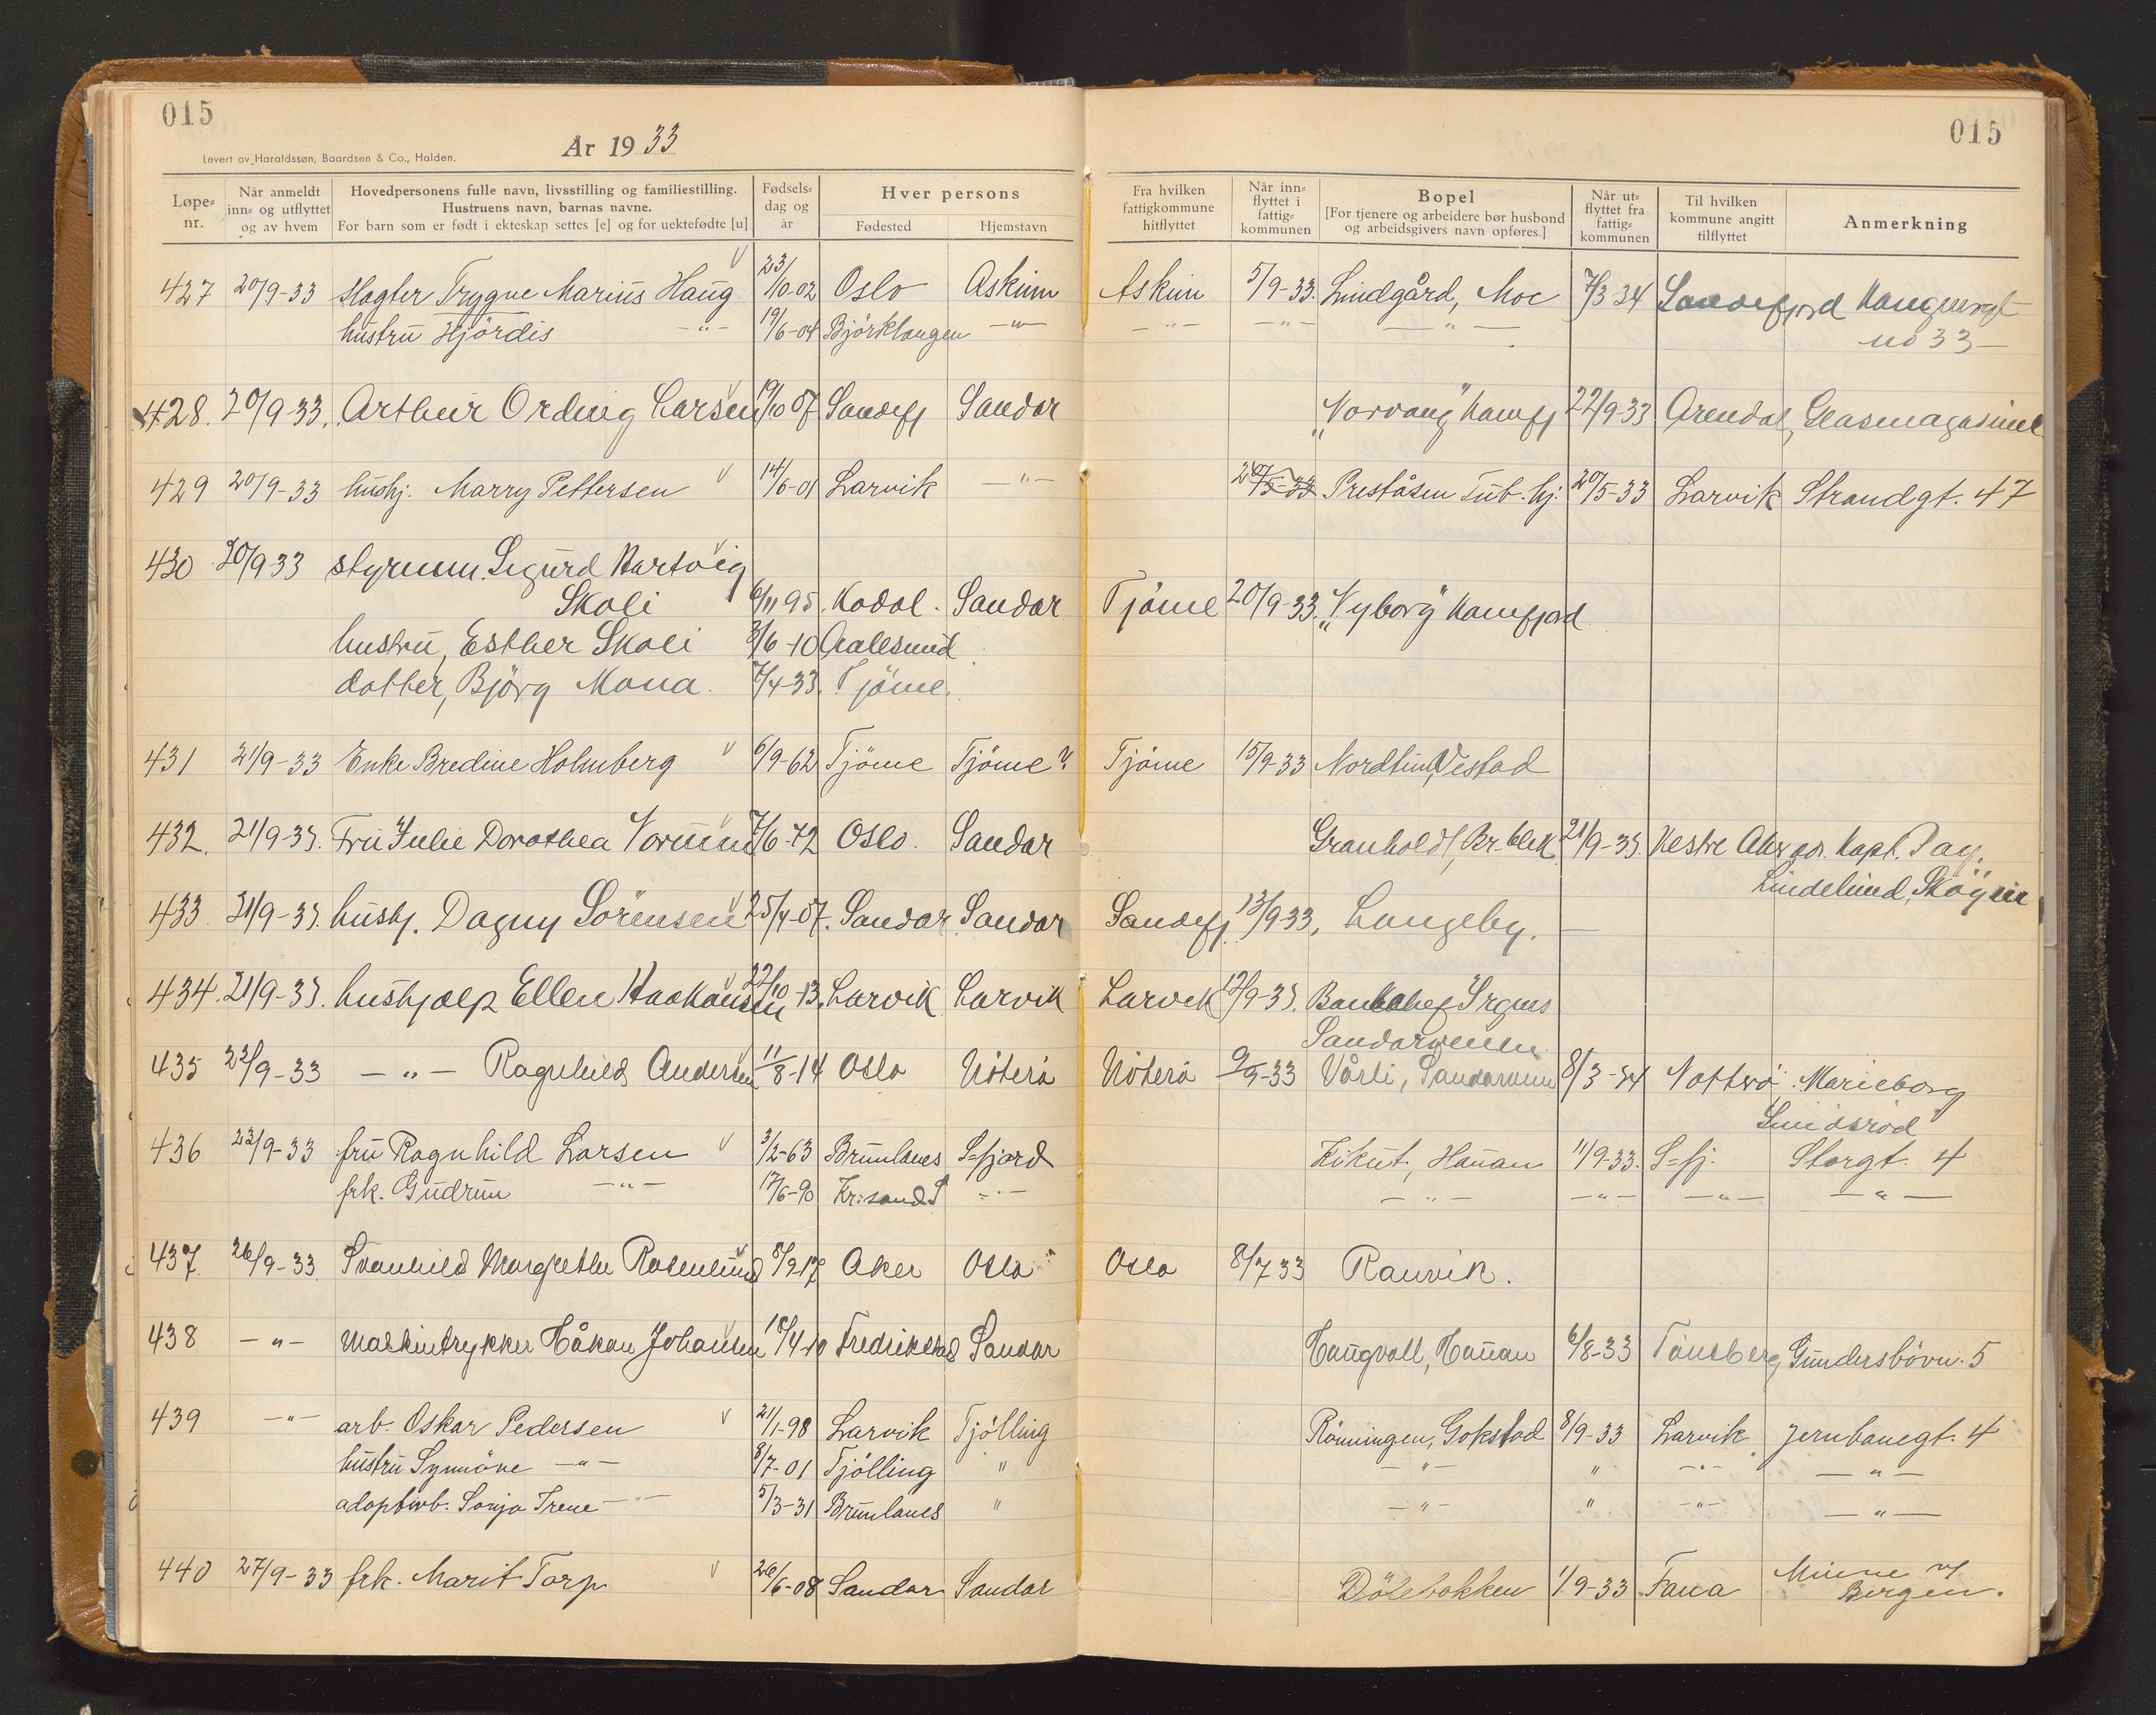 015
015
År 1933
Levert av Haraldssøn, Baardsen & Co., Halden.
Løpe-nr.
Når anmeldt inn- og utflyttet og av hvem
Hovedpersonens fulle navn, livsstilling og familiestilling. Hustruens navn, barnas navne. For barn som er født i ekteskap settes [e] og for uektefødte [u]
Fødsels-dag og år
Hver persons
Fødested
Hjemstavn
Fra hvilken fattigkommune hitflyttet
Når inn-flyttet i fattig-kommunen
Bopel [For tjenere og arbeidere bør husbond og arbeidsgivers navn opføres.]
Når ut-flyttet fra fattig-kommunen
Til hvilken kommune angitt tilflyttet
Anmerkning
427 20/9-33 slagter Trygve Marius Haug 23/10-02 Oslo Askim Askim 5/9-33. Lindgård, Moe 7/3-34 Sandefjord
no 33-
hustru Hjördis -"- 19/6-04 Björklangen -"- -"- -"- -"-
428. 20/9-33. Arthur Ording Larsen 19/10 07 Sandefj Sandar "Norvang" Kamfj 22/9-33 Arendal, Glasmagasinet
429 20/9-33 hushj. Marry Pettersen 14/6-01 Larvik -"- 20/5-33 Preståsen Tub. hj. 20/5-33 Larvik Strandgt. 47
430 20/9 33 styrmm. Sigurd Hartvig
Skoli 6/11 95. Kodal. Sandar Tjöme 20/9-33. "Nyborg" Kamfjord
hustru, Esther Skoli 3/6-10 Aalesund
datter, Björg Mona. 7/4-33. Tjöme.
431 21/9-33 Enke Bredine Holmberg 6/9-62 Tjöme Tjöme? Tjöme 15/9-33 Vestad
432. 21/9-33. Fru Julie Dorothea 7/6-72 Oslo. Sandar Granholdt, Br. blek 21/9-33. Vestre Aker adr. Kapt. Dag.
Lindelund, Skøyen
433. 21/9-33. hushj. Dagny Sörensen 25/4-07. Sandar Sandar Sandefj 13/9-33, Langeby.
434. 21/9-33. hushjælp Ellen Haakonsen 22/10-13. Larvik Larvik Larvik 12/9-33. Banksjef
Sandarveien
435 22/9-33 -"- Ragnhild Andersen 11/8-14 Oslo Nöterö Nöterö 9/9-33 Vårli, Sandarveien 8/3-34 Notterö. Marieborg
Smidsröd
436 22/9-33 fru Ragnhild Larsen 3/2-63 Brunlanes S=fjord Kikut, Hauan 11/9-33. S=fj. Storgt. 4
frk. Gudrun -"- 17/6-90 Kr:sand S -"- -"- -"- -"- -"-
437. 26/9-33. Svanhild Margrethe Rosenlund 8/9 17 Aker Oslo Oslo 8/7 33 Ranvik.
438 -"- Maskintrykker Håkon Johansen 18/4-10 Fredrikstad Sandar Haugvoll, Hauan 6/8-33 Tönsberg Gundersbövn. 5
439 -"- arb. Oskar Pedersen 21/1-98 Larvik Tjölling Rönningen, Gokstad 8/9-33 Larvik Jernbanegt. 4
hustru Synnöve -"- 8/7-01 Tjölling " -"- " -"- -"-
adoptivb. Sonja Irene -"- 5/3-31 Brunlanes " -"- " -"- -"-
440 27/9-33 frk. Marit Torp 26/6-08 Sandar Sandar Dölebakken 1/9-33 Fana Minne v/
Bergen.